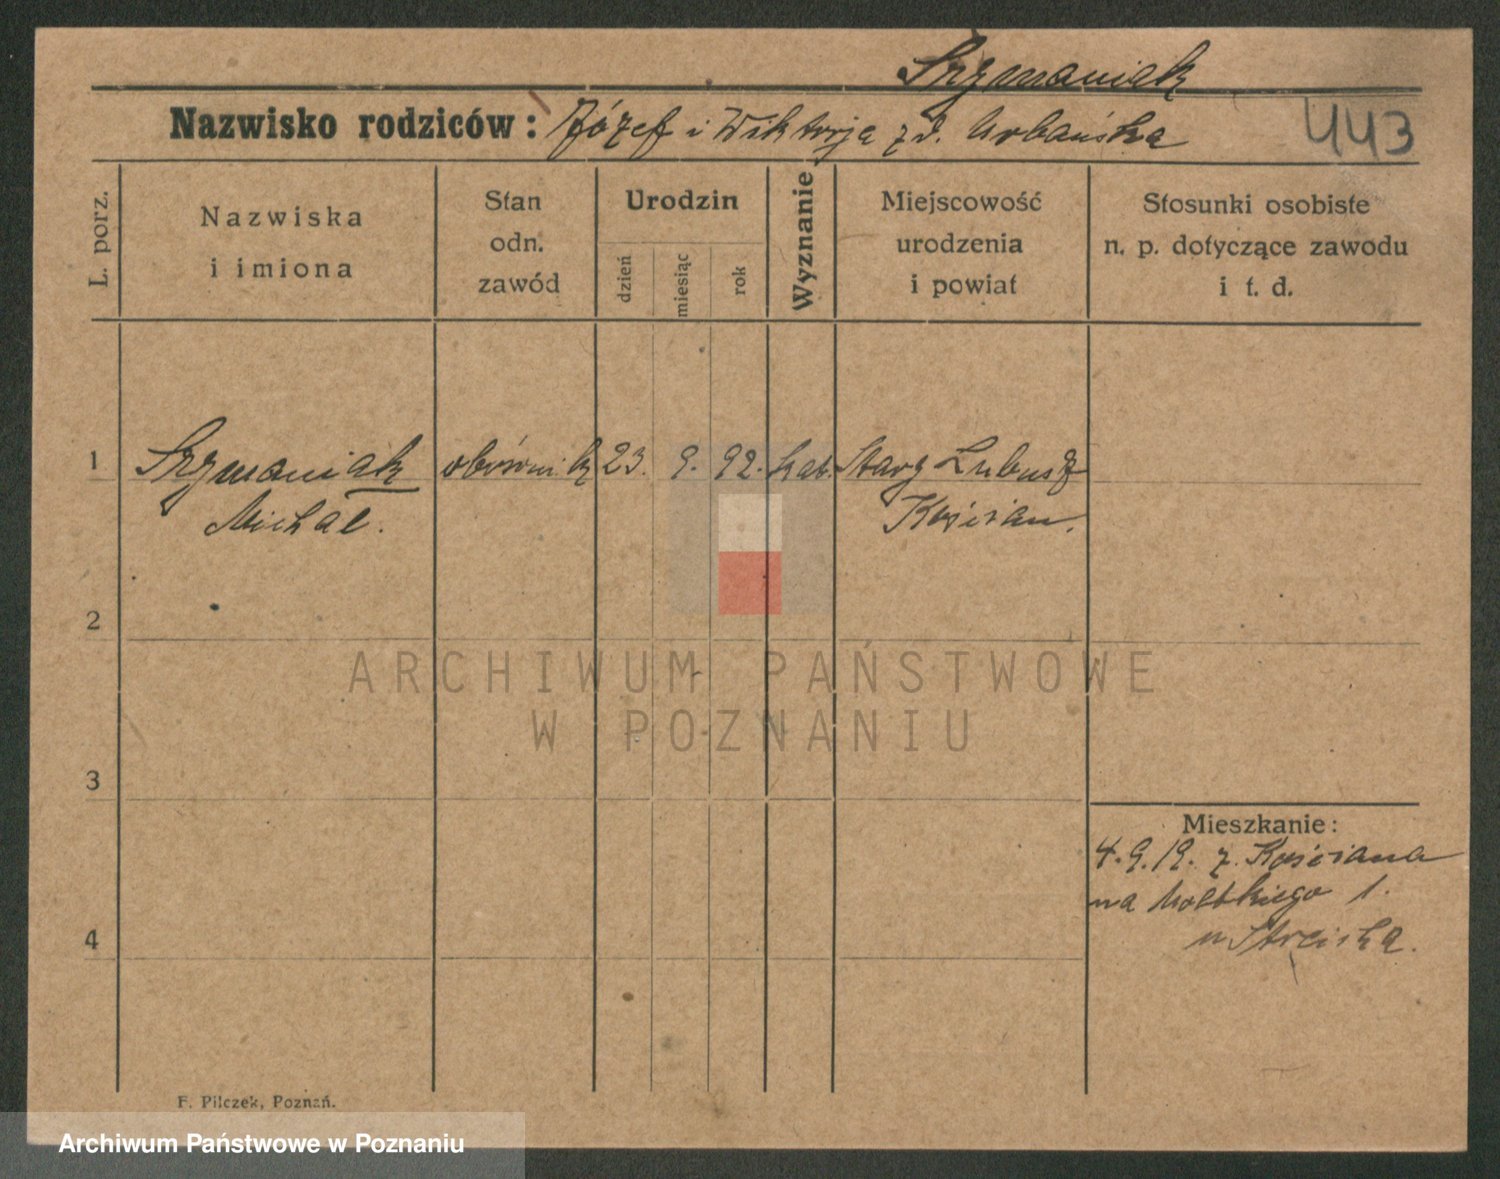 Szymaniak
Nazwisko rodziców: Józef i Wiktorja zd. Urbańska
443
L. porz.
Nazwiska
i imiona
Stan
odn.
zawód
Urodzin
dzień
miesiąc
rok
Wyznanie
Miejscowość
urodzenia
i powiat
Stosunki osobiste
n. p. dotyczące zawodu
i t. d.
1
Szymaniak
Michał.
23. 9. 92. kat.
Stary Lubosz
Kościan.
2
ARCHIWUM PAŃSTWOWE
W POZNANIU
3
Mieszkanie:
4. 9. 19. z Kościana
na Moltkiego 1.
4
F. Pilczek, Poznań.
Archiwum Państwowe w Poznaniu